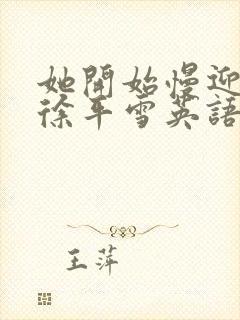 她開始慢迎
徐平雪英語
王萍